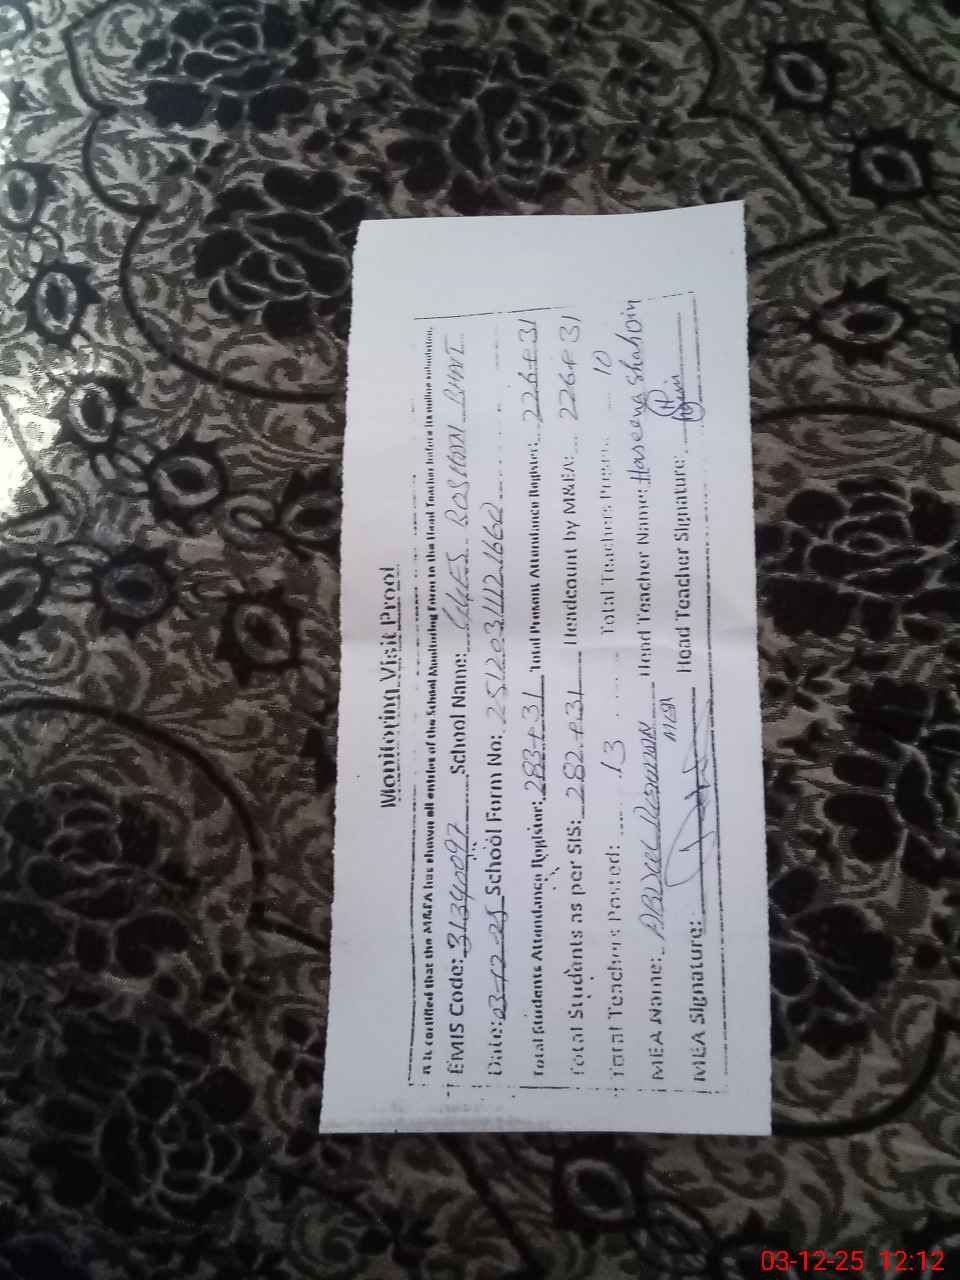 Monitoring Visit Proof
It is certified that the M&EA has shown all entries of the School Monitoring Form to the Head Teacher before its online submission.
EMIS Code: 31340097 School Name: BOSHAN
Date: 03-12-25 School Form No:
Total Students Attendance Register: 283+31 Total Present Attendance Register: 226+31
Total Students as per SIS: 282+31 Headcount by M&EA: 226+31
Total Teachers Posted: 13 Total Teachers Present: 10
MEA Name: ABDUL Head Teacher Name: Haseena Shaheen
MEA Signature: Head Teacher Signature:
03-12-25 12:12